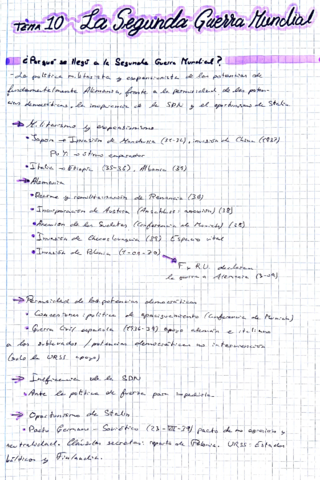 Tema 10 La Segunda Guerra Mundial
¿Por qué se llegó a la Segunda Guerra Mundial?
- La política militarista y expansionista de las potencias de
fundamentalmente Alemania, frente a la permisividad de las poten-
cias democráticas, la inoperancia de la SDN y el oportunismo de Stalin
→ Militarismo y expansionismo
• Japón → Invasión de Manchuria (31-32), invasión de China (1937)
Pu Yi → último emperador
• Italia → Etiopía (35-36), Albania (39)
→ Alemania
• Rearme y remilitarización de Renania (36)
• Incorporación de Austria (Anschluss: anexión) (38)
• Anexión de los Sudetes (Conferencia de Munich) (38)
• Invasión de Checoslovaquia (39) Espacio vital
• Invasión de Polonia (1-09-39)
F y R.U. declaran
la guerra a Alemania (3-09)
→ Permisividad de las potencias democráticas
• Concesiones: política de apaciguamiento (Conferencia de Munich)
• Guerra Civil española (1936-39) apoyo alemán e italiano
a los sublevados / potencias democráticas no intervención
(solo la URSS apoyo)
→ Ineficiencia de la SDN
• Ante la política de fuerza para impedirla.
→ Oportunismo de Stalin
• Pacto Germano-Soviético (23-VIII-39) pacto de no agresión y
neutralidad. Cláusulas secretas: reparto de Polonia. URSS: Estados
bálticos y Finlandia.